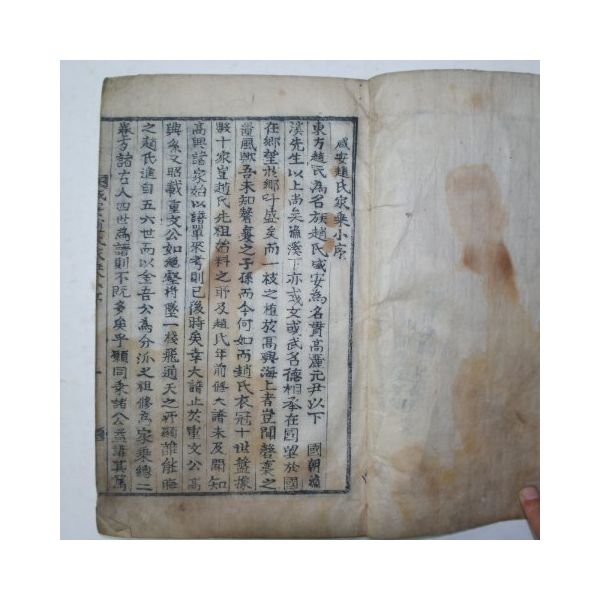 咸安趙氏家乘小序
東方趙氏為名族趙氏咸安為名貫高麗元尹以下 國朝漁
溪先生以上尚矣漁溪下亦或文或武名德相承在國望於國
在鄉望於鄉吁盛矣而一枝之植於高興海上者豈聞磬襄之
風歟吾未知磬襄之子孫而今何如而趙氏衣冠十世盤據
數十家豈趙氏先祖始料之耶及趙氏年前修大譜未及聞知
高興諸家始以譜單來考則已後時矣幸大譜止於重文公高
興系又昭載重文公如絕壑將墜一棧飛通天之所顯誰能晦
之趙氏進自五六世而以金吾公為分派之祖修為家乘總二
卷方諸古人四世為譜則不既多矣乎願同乘諸公益講其篤